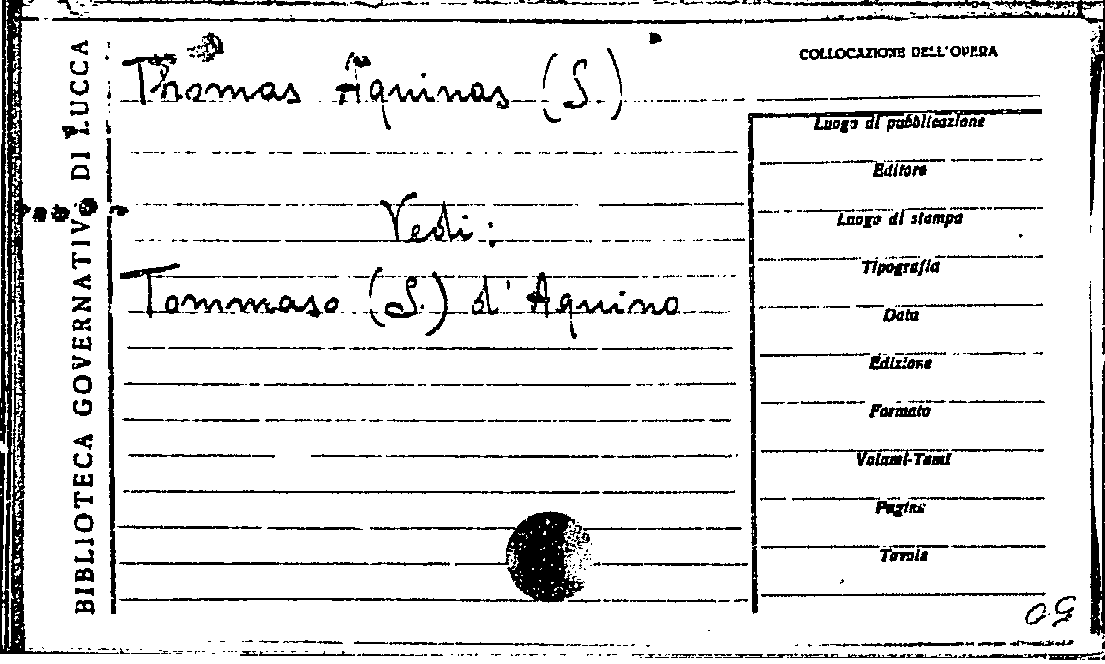 BIBLIOTECA GOVERNATIVA DI LUCCA
Thomas Aquinas (S.)
Vedi:
Tommaso (S.) d'Aquino
COLLOCAZIONE DELL'OPERA
Luogo di pubblicazione
Editore
Luogo di stampa
Tipografia
Data
Edizione
Formato
Volumi-Tomi
Pagine
Tavole